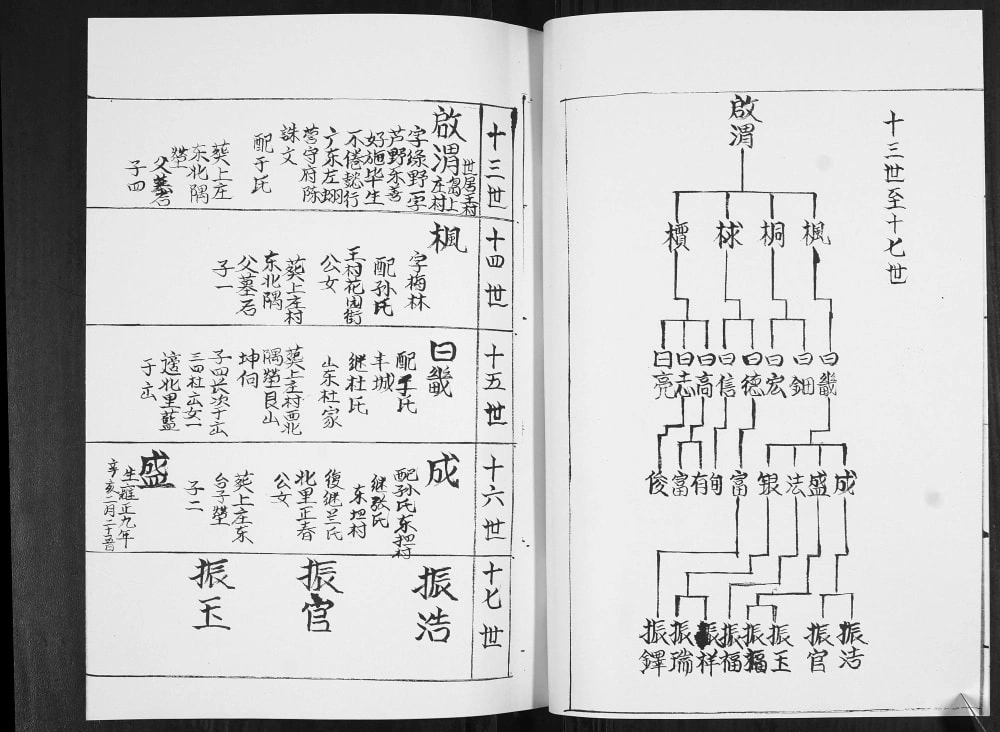 十三世至十七世
啟渭
楓
桐
梂
櫝
曰畿
曰鈿
曰宏
曰德
曰信
曰高
曰志
曰亮
成
盛
法
銀
富
有
富
俊
振浩
振官
振玉
振福
振福
振祥
振瑞
振鐸
十三世
啟渭
世居王村
島上庄村
字绿野一字
芦野乐善
好施毕生
不倦懿行
广东左翊
营守府陈
誄文
配于氏
葬上庄
东北隅
塋
父墓右
子四
十四世
楓
字梅林
配孙氏
王村花园街
公女
葬上庄村
东北隅
父墓右
子一
十五世
曰畿
配于氏
丰城
继杜氏
山东杜家
葬上庄村西北
隅塋艮山
坤向
子四长次于出
三四杜出女一
適北里藍
于出
十六世
成
配孙氏东坦村
继张氏
东坦村
後继兰氏
北里正春
公女
葬上庄东
台子塋
子二
盛
生雍正九年
辛亥二月二十
十七世
振浩
振官
振玉